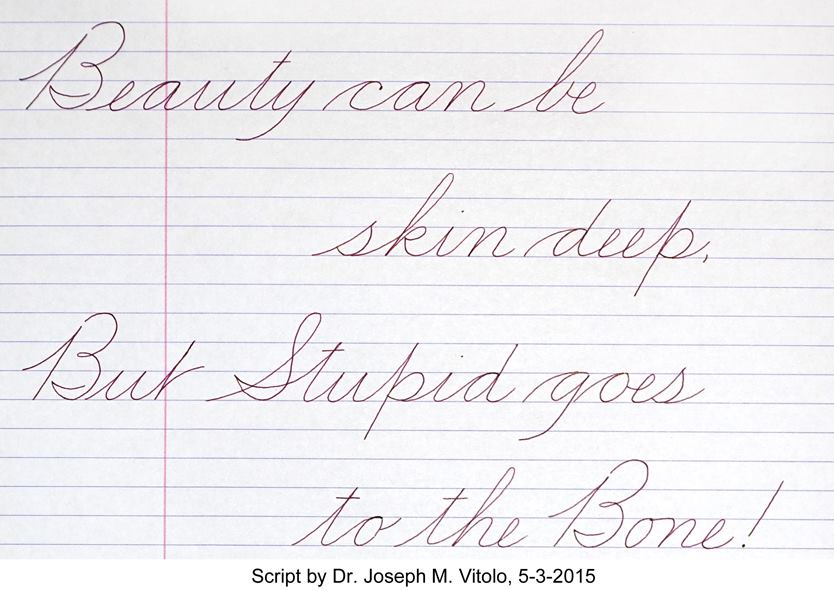 Beauty can be
skin deep,
But Stupid goes
to the Bone!
Script by Dr. Joseph M. Vitolo, 5-3-2015